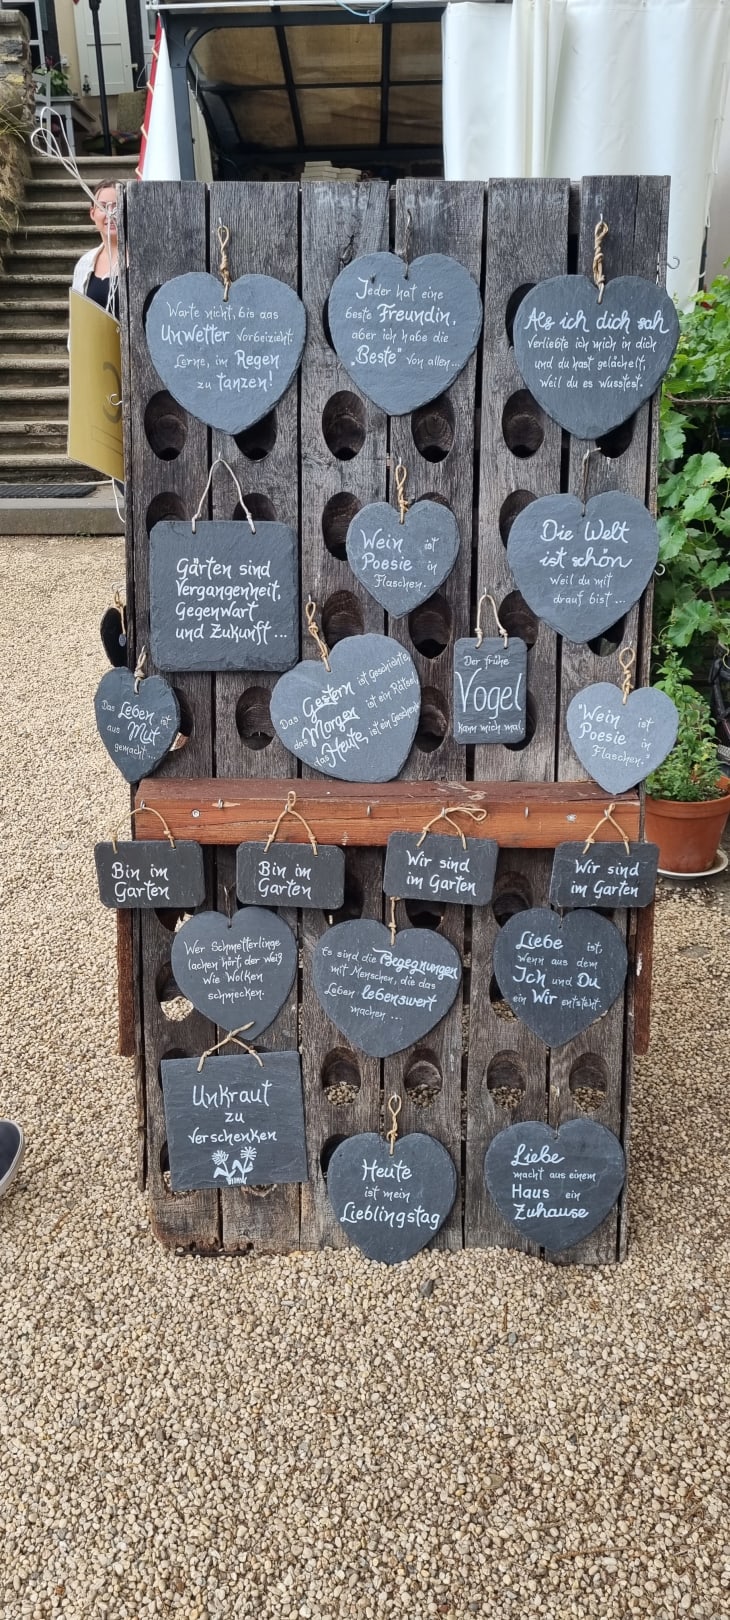 Warte nicht, bis das
Unwetter vorbeizieht.
Lerne, im Regen
zu tanzen!
Jeder hat eine
beste Freundin,
aber ich habe die
„Beste" von allen...
Als ich dich sah
verliebte ich mich in dich
und du hast gelächelt,
weil du es wusstest.
Gärten sind
Vergangenheit,
Gegenwart
und Zukunft...
Wein ist
Poesie in
Flaschen.
Die Welt
ist schön
weil du mit
drauf bist...
Das Leben ist
aus Mut
gemacht...
Das Gestern ist Geschichte,
das Morgen ist ein Rätsel,
das Heute, ist ein Geschenk
Der frühe
Vogel
kann mich mal.
"Wein ist
Poesie in
Flaschen."
Bin im
Garten
Bin im
Garten
Wir sind
im Garten
Wir sind
im Garten
Wer Schmetterlinge
lachen hört, der weiß
wie Wolken
schmecken.
Es sind die Begegnungen
mit Menschen, die das
Leben lebenswert
machen...
Liebe ist,
wenn aus dem
Ich und Du
ein Wir entsteht.
Unkraut
zu
verschenken
Heute
ist mein
Lieblingstag
Liebe
macht aus einem
Haus ein
Zuhause